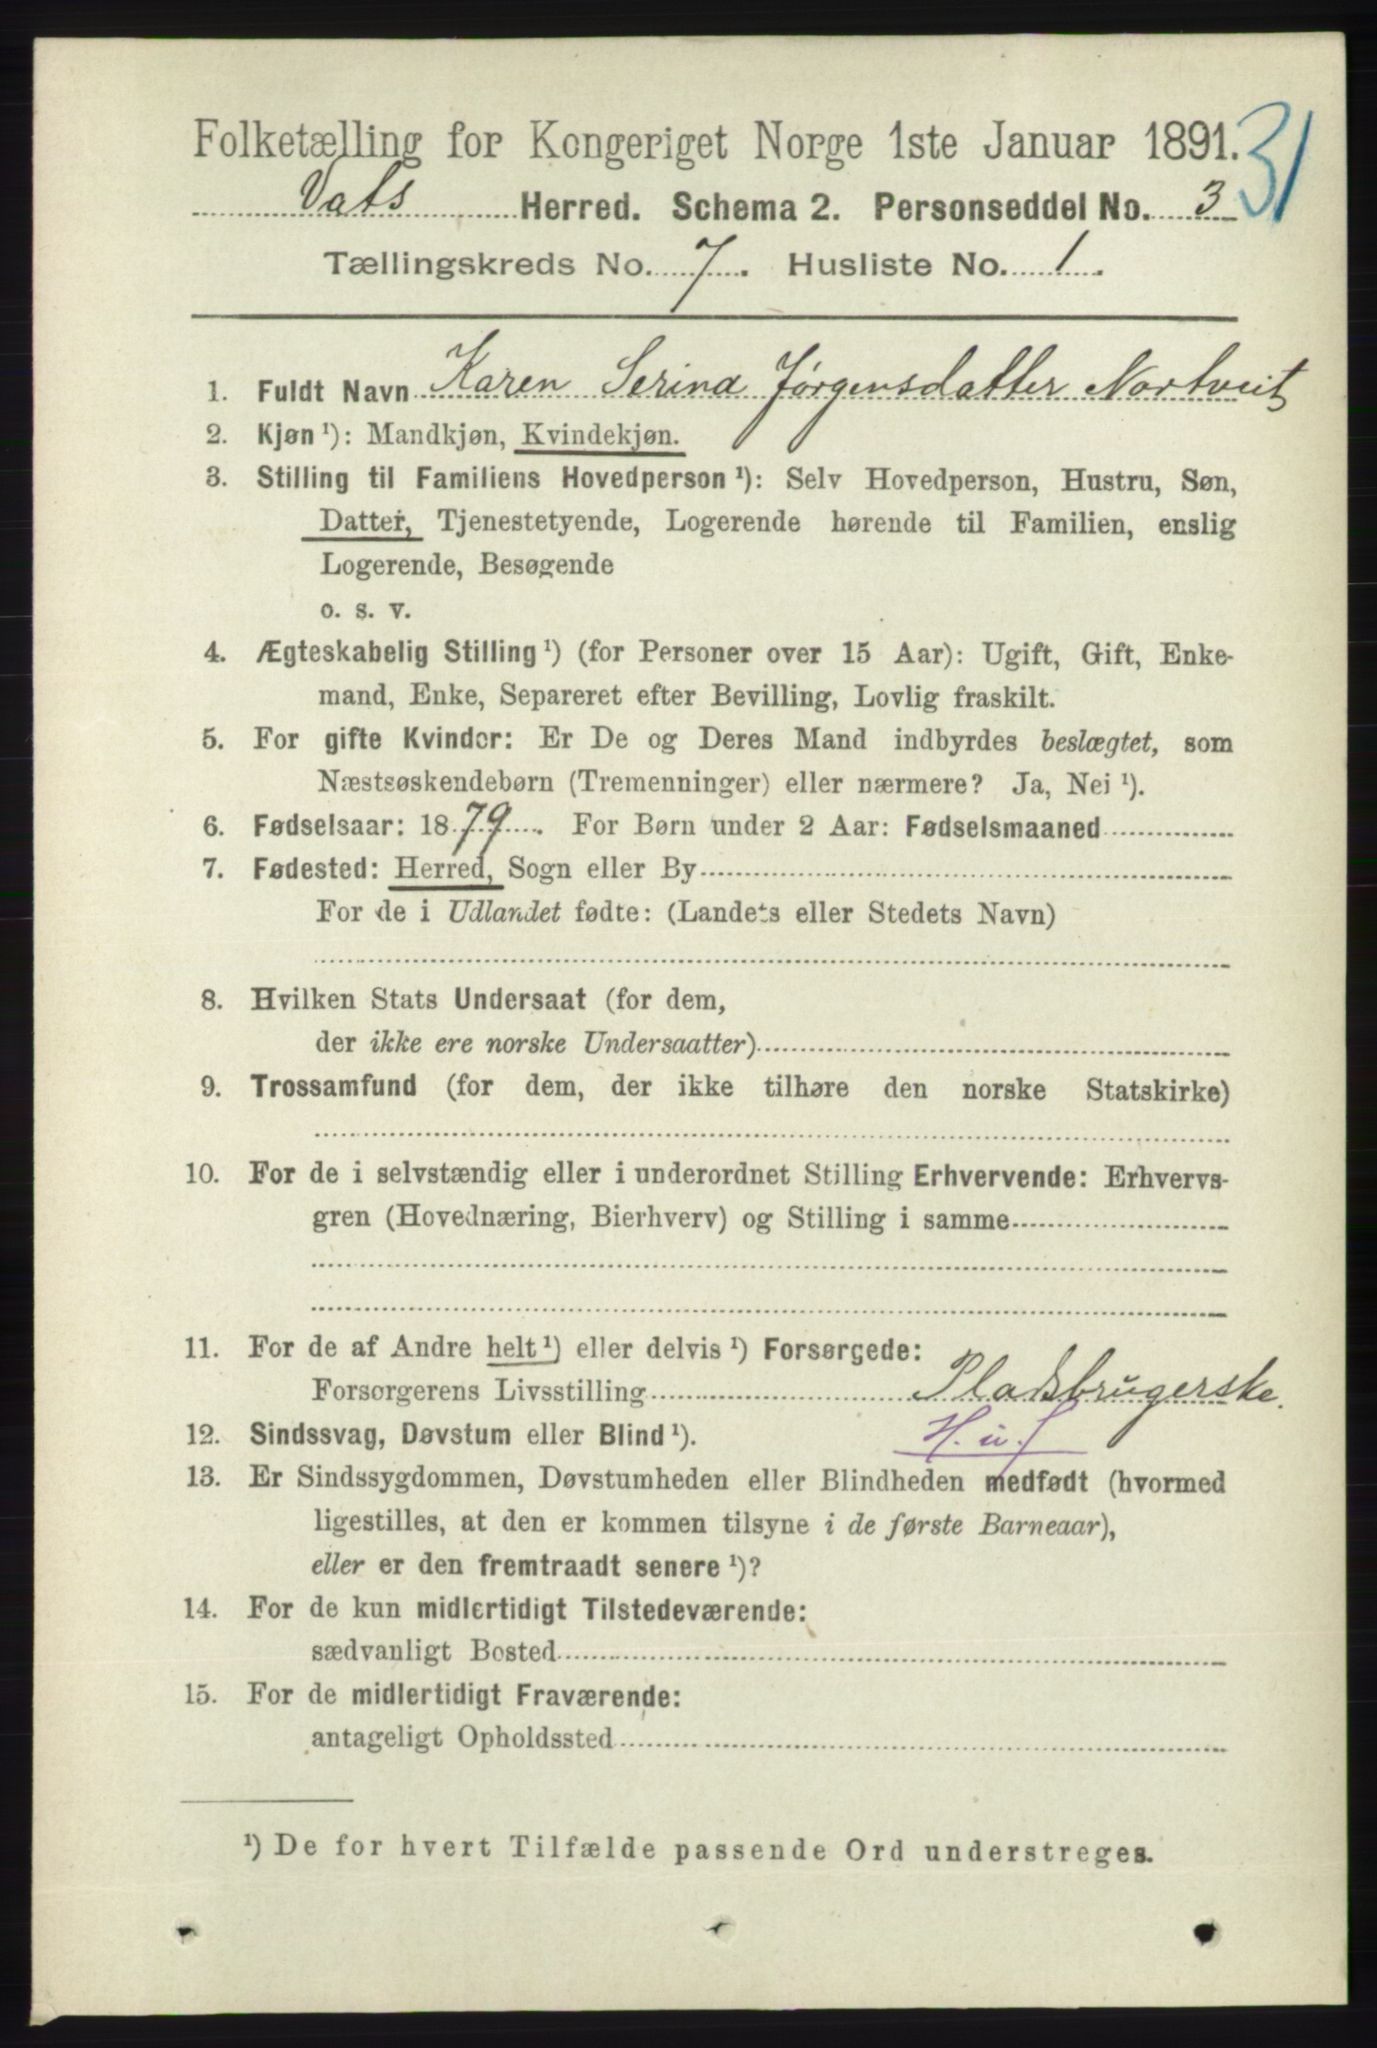 Folketælling for Kongeriget Norge 1ste Januar 1891.
31
Vats Herred. Schema 2. Personseddel No. 3
Tællingskreds No. 7. Husliste No. 1.
1. Fuldt Navn Karen Serina Jørgensdatter Nortveit
2. Kjøn ¹): Mandkjøn, Kvindekjøn.
3. Stilling til Familiens Hovedperson ¹): Selv Hovedperson, Hustru, Søn,
Datter, Tjenestetyende, Logerende hørende til Familien, enslig
Logerende, Besøgende
o. s. v.
4. Ægteskabelig Stilling ¹) (for Personer over 15 Aar): Ugift, Gift, Enke-
mand, Enke, Separeret efter Bevilling, Lovlig fraskilt.
5. For gifte Kvinder: Er De og Deres Mand indbyrdes beslægtet, som
Næstsøskendebørn (Tremenninger) eller nærmere? Ja, Nei ¹).
6. Fødselsaar: 1879. For Børn under 2 Aar: Fødselsmaaned
7. Fødested: Herred, Sogn eller By
For de i Udlandet fødte: (Landets eller Stedets Navn)
8. Hvilken Stats Undersaat (for dem,
der ikke ere norske Undersaatter)
9. Trossamfund (for dem, der ikke tilhøre den norske Statskirke)
10. For de i selvstændig eller i underordnet Stilling Erhvervende: Erhvervs-
gren (Hovednæring, Bierhverv) og Stilling i samme
11. For de af Andre helt ¹) eller delvis ¹) Forsørgede:
Forsørgerens Livsstilling Pladsbrugerske.
12. Sindssvag, Døvstum eller Blind ¹). H. u. f
13. Er Sindssygdommen, Døvstumheden eller Blindheden medfødt (hvormed
ligestilles, at den er kommen tilsyne i de første Barneaar),
eller er den fremtraadt senere ¹)?
14. For de kun midlertidigt Tilstedeværende:
sædvanligt Bosted
15. For de midlertidigt Fraværende:
antageligt Opholdssted
¹) De for hvert Tilfælde passende Ord understreges.